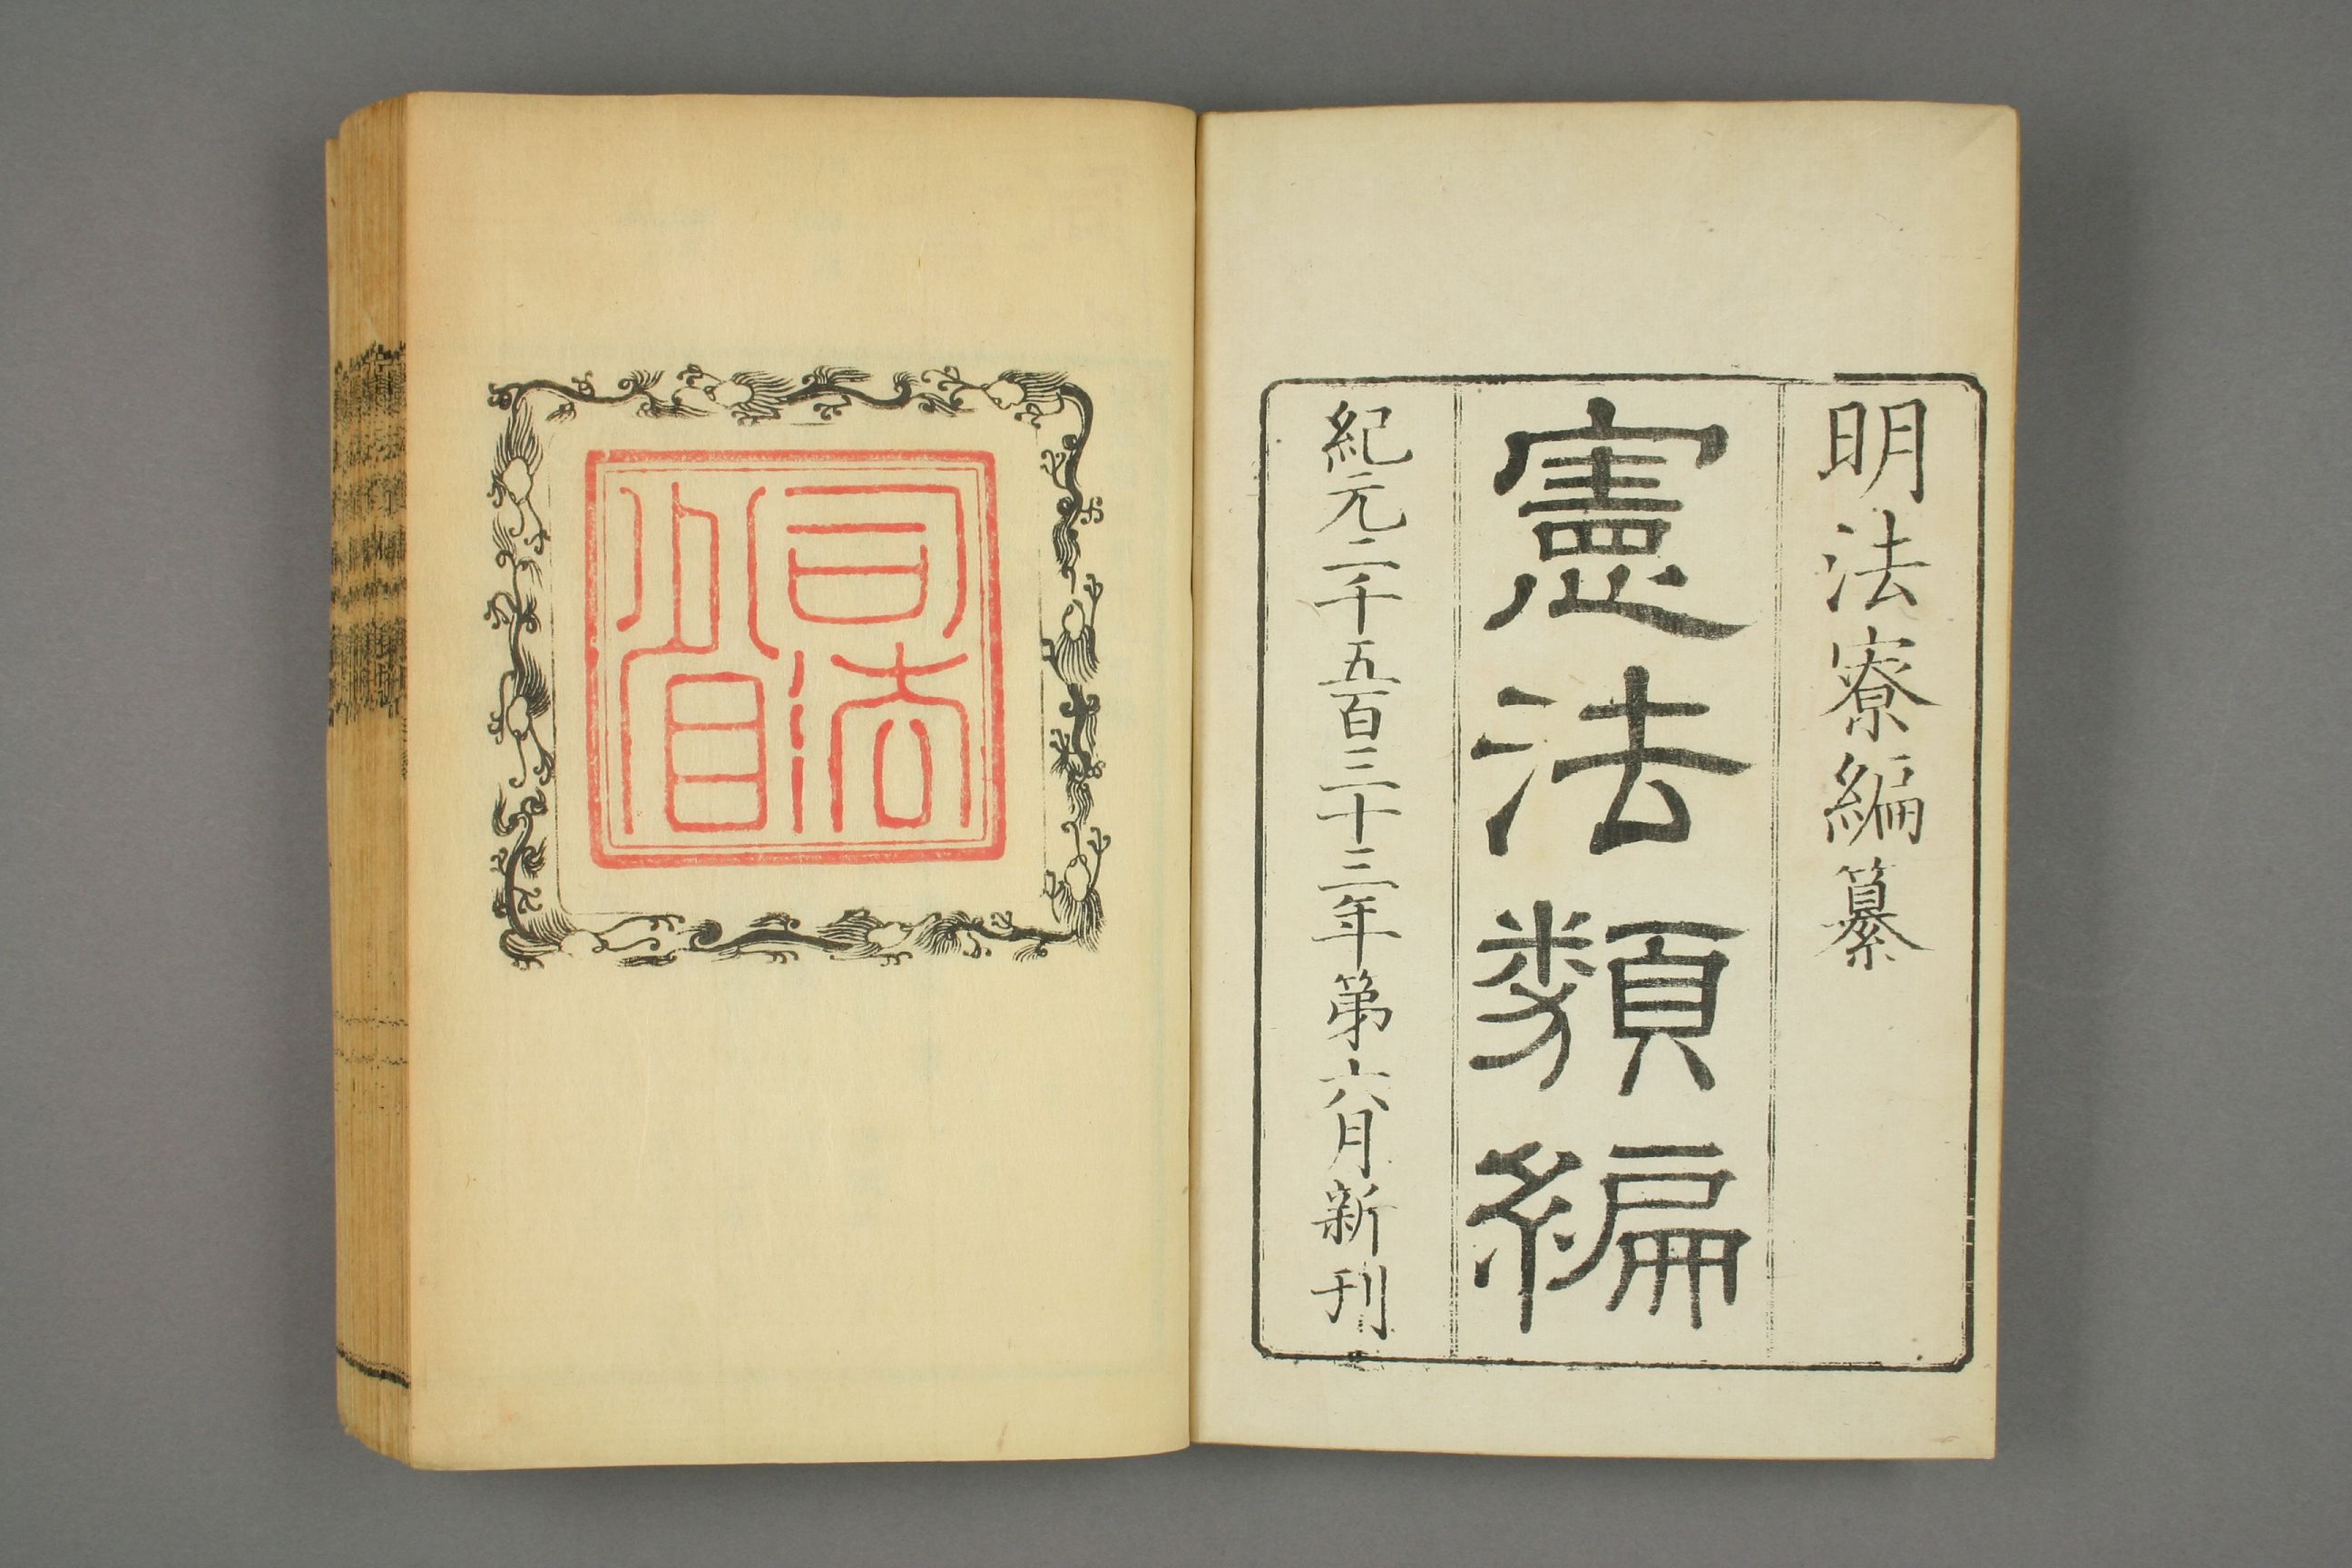 明法寮編纂
憲法類編
紀元二千五百三十三年第六月新刊
司法省印